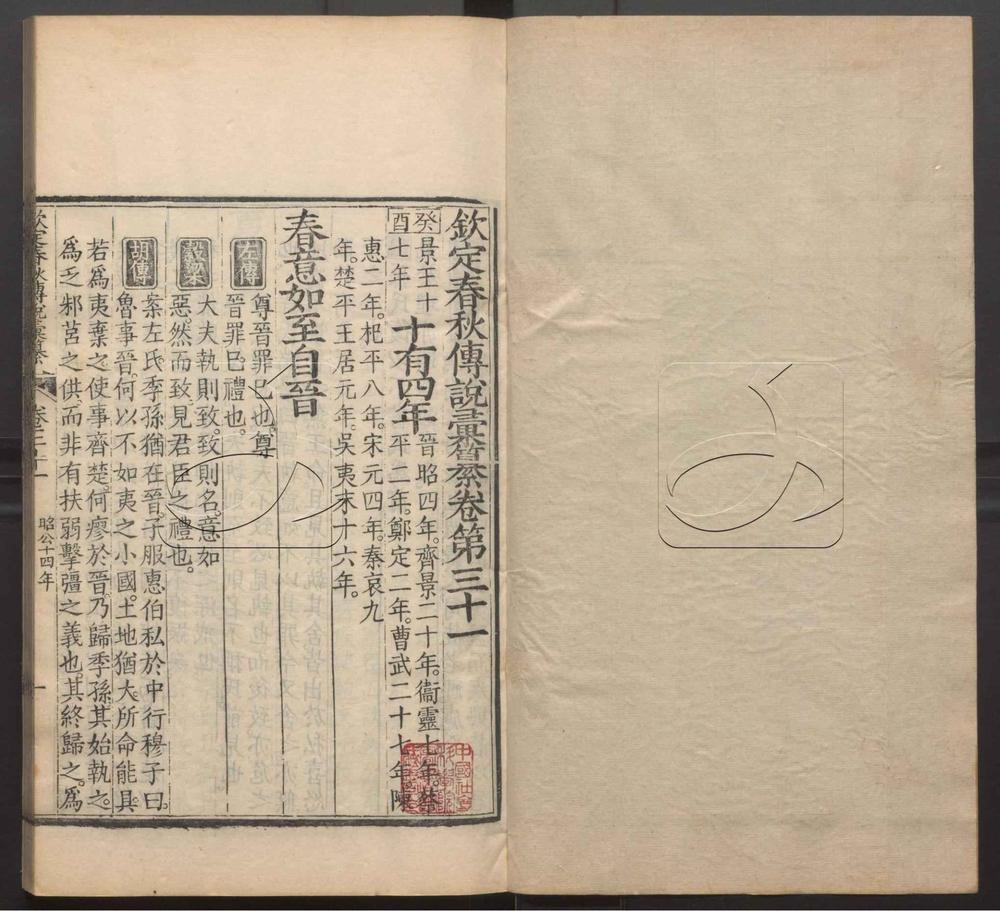 欽定春秋傳說彙纂卷第三十一
癸酉 景王十七年 十有四年 晉昭四年。齊景二十年。衞靈七年。蔡平二年。鄭定二年。曹武二十七年。陳
惠二年。杞平八年。宋元四年。秦哀九
年。楚平王居元年。吳夷末十六年。
春意如至自晉
左傳 尊晉罪已也。尊
晉罪已。禮也。
穀梁 大夫執則致。致則名。意如
惡。然而致。見君臣之禮也。
胡傳 案左氏。季孫猶在晉。子服惠伯私於中行穆子曰。
魯事晉。何以不如夷之小國。土地猶大。所命能具。
若爲夷棄之。使事齊楚。何瘳於晉。乃歸季孫。其始執之。
爲乏邾莒之供。而非有扶弱擊彊之義也。其終歸之。爲
欽定春秋傳說彙纂 卷三十一 昭公十四年 一